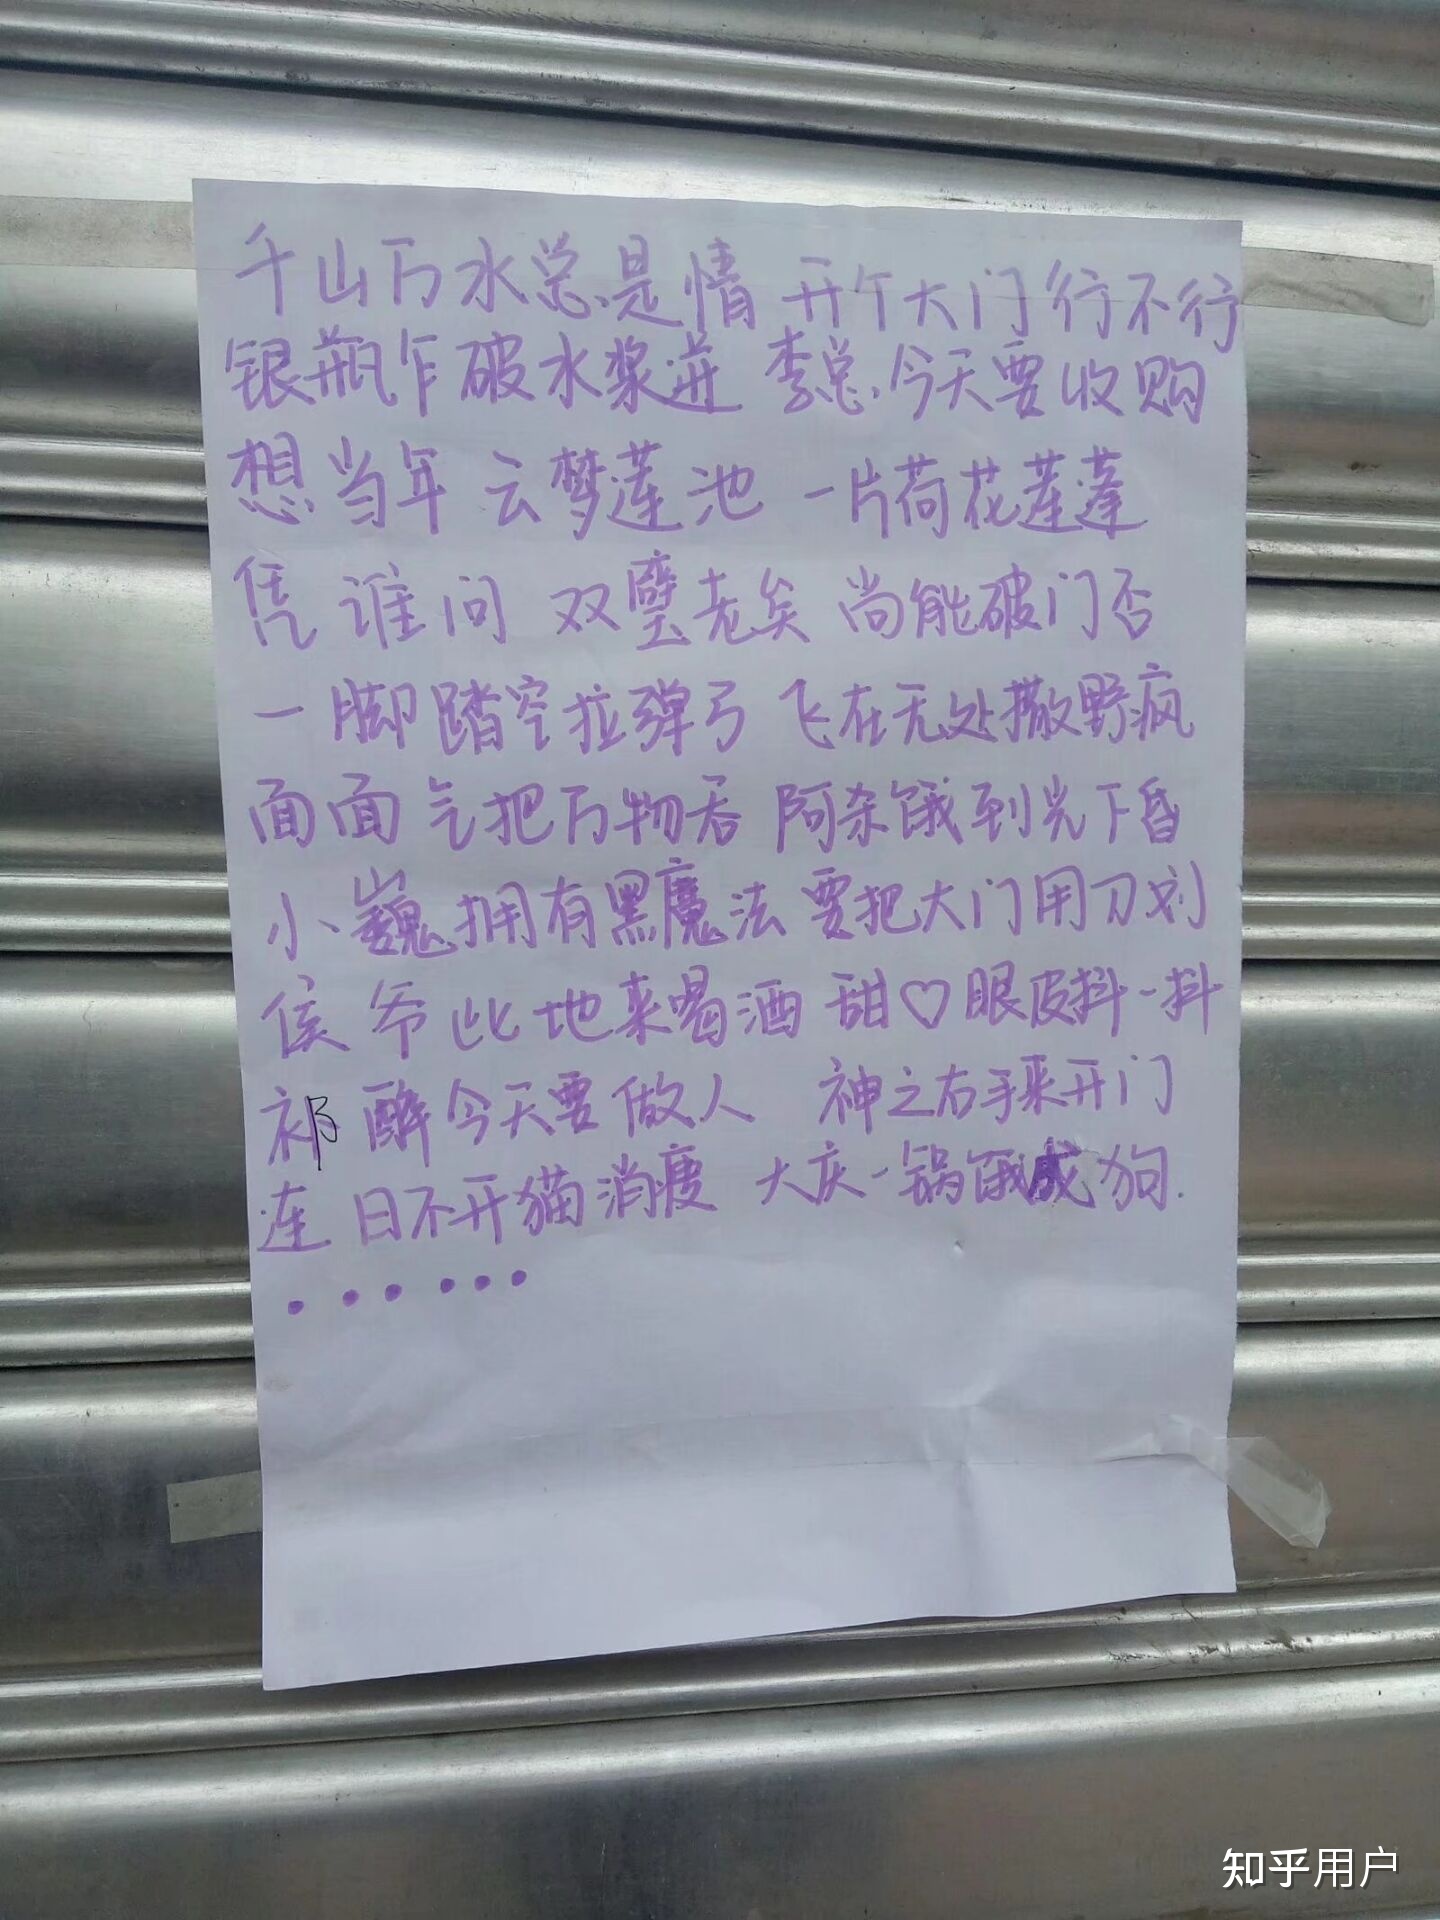 千山万水总是情 开个大门行不行
银瓶乍破水浆迸 李总今天要收购
想当年 云梦莲池 一片荷花莲蓬
凭谁问 双壁老矣 尚能破门否
一脚踏空拉弹弓 飞在无处撒野疯
面面乞把万物吞 阿杂饿到光下昏
小巍拥有黑魔法 要把大门用刀划
侯爷此地来喝酒 甜♡眼皮抖一抖
祁醉今天要做人 神之右手来开门
连日不开猫消瘦 大庆一锅饿成狗.
······
知乎用户